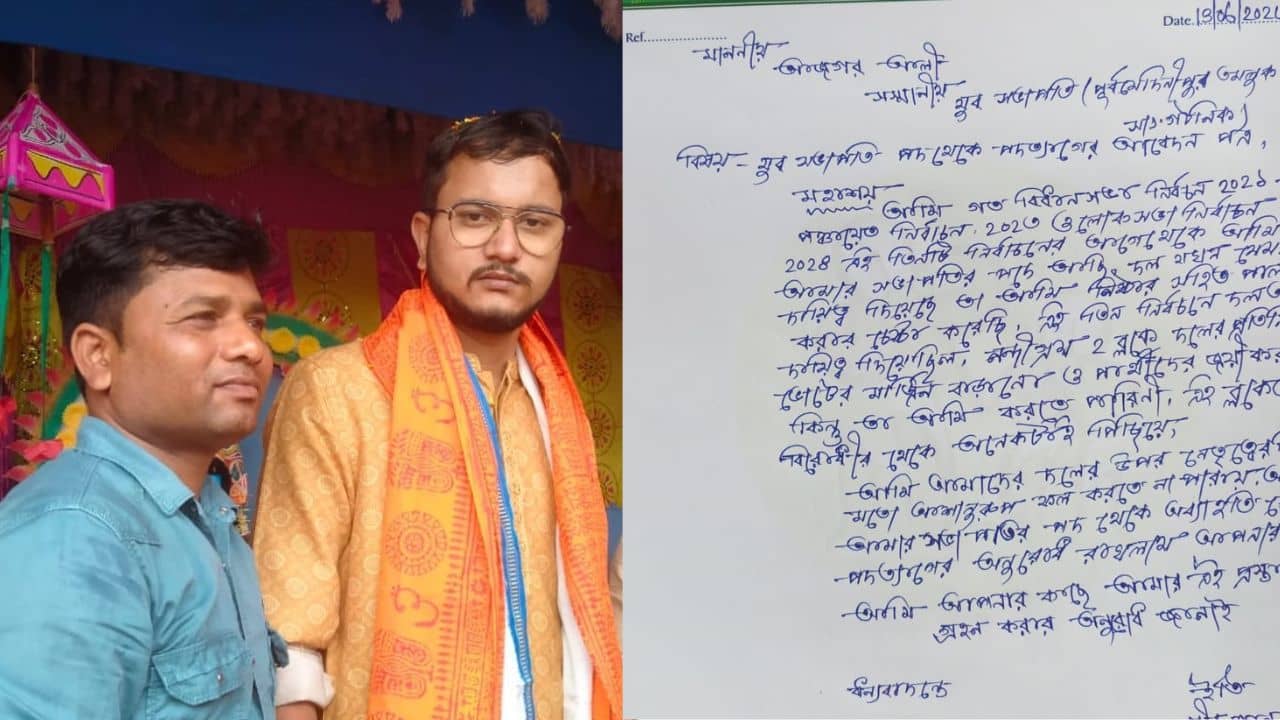 Date. 13/06/202
Ref.
মাননীয়
আজগর আলী
সম্মানীয় যুব সভাপতি (পূর্বমেদিনীপুর তমলুক
সাংগঠনিক)
বিষয় – যুব সভাপতি পদ থেকে পদত্যাগের আবেদন পত্র,
মহাশয়
আমি গত বিধানসভা নির্বাচন ২০২১
পঞ্চায়েত নির্বাচন, ২০২৩ ও লোকসভা নির্বাচন
২০২৪ এই তিনটি নির্বাচনের আগে থেকে আমি
আমার সভাপতির পদে আছি, দল যখন যেমন
দায়িত্ব দিয়েছে তা আমি নিষ্ঠার সহিত পাল
করার চেষ্টা করেছি, এই তিন নির্বাচনে দল
দায়িত্ব দিয়েছিল, নন্দীগ্রাম 2 ব্লকে দলের প্রতি
ভোটের মার্জিন বাড়ানো ও প্রার্থীদের জয়ী কর
কিন্তু তা আমি করতে পারিনী, এই ব্লকে
বিরোধীর থেকে অনেকটাই পিছিয়ে,
আমি আমাদের দলের উপর নেতৃত্বের
মতো আশানুরূপ ফল করতে না পারায়,
আমার সভাপতির পদ থেকে অব্যাহতি
পদত্যাগের অনুরোধ রাখলাম আপনার
আমি আপনার কাছে আমার এই প্রস্তা
গ্রহন করার অনুরোধ জানাই
ধন্যবাদান্তে
ইতি